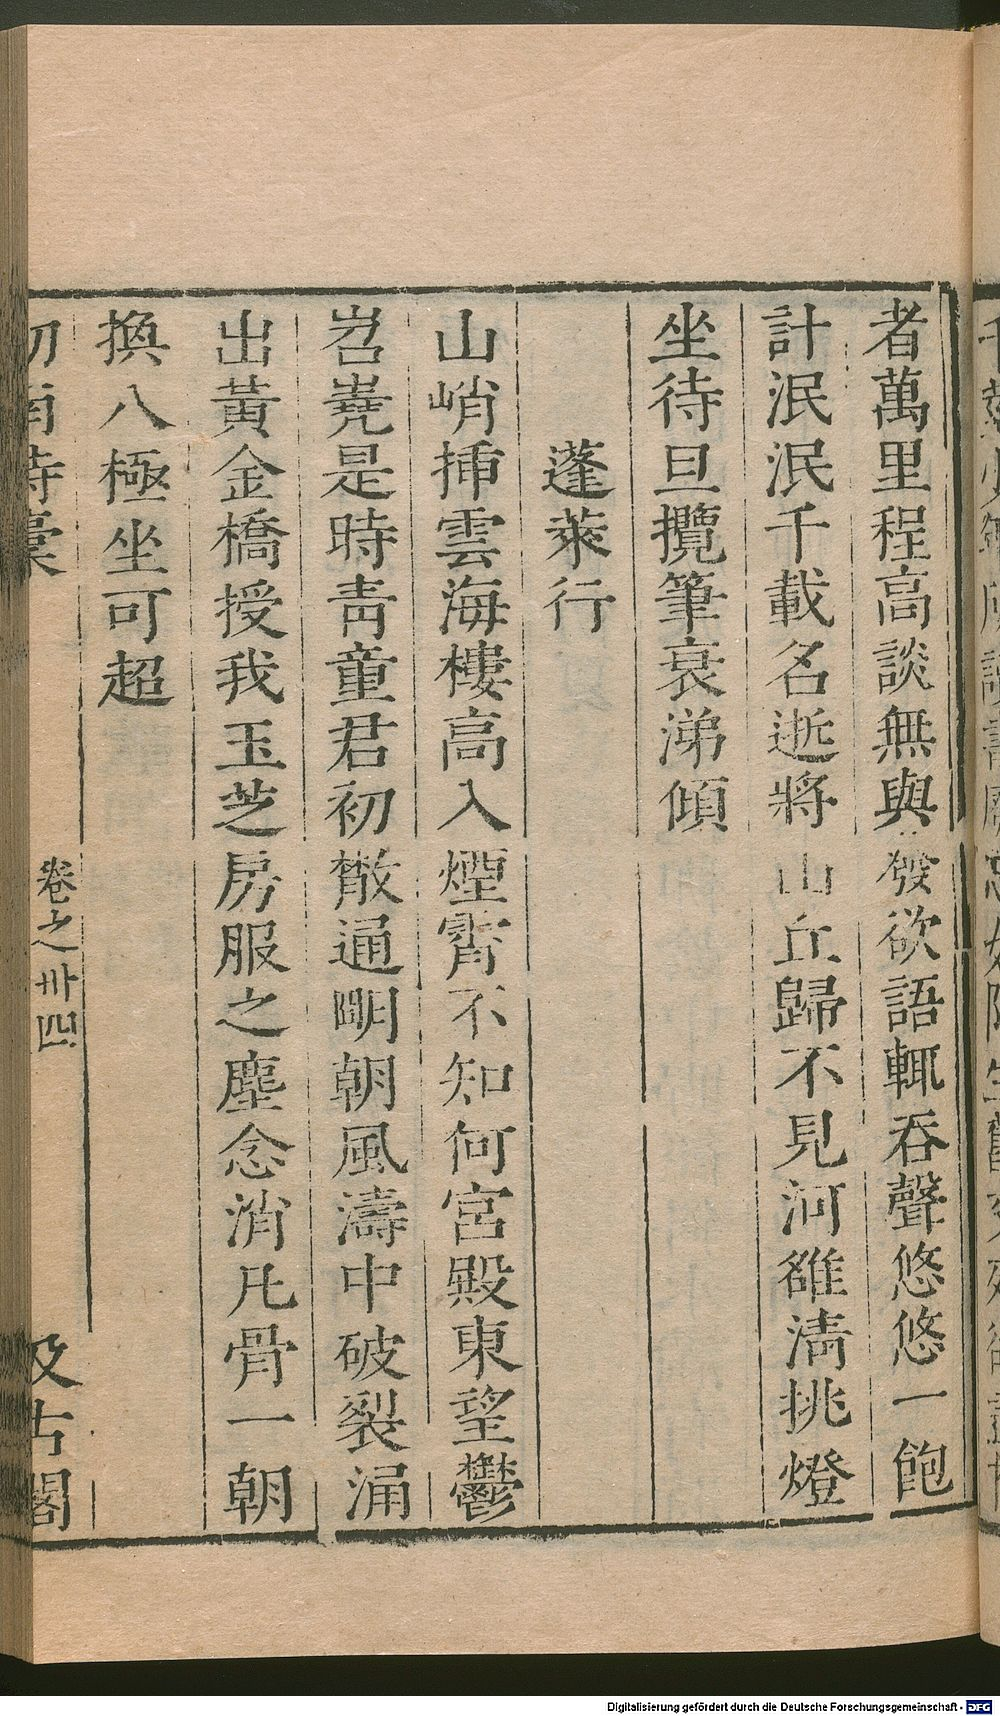 者萬里程高談無與發欲語輒吞聲悠悠一飽
計泯泯千載名逝將山丘歸不見河雒淸挑燈
坐待旦攬筆衰涕傾
蓬萊行
山峭揷雲海樓高入煙霄不知何宮殿東望鬱
岧嶤是時靑童君初散通明朝風濤中破裂涌
出黃金橋授我玉芝房服之塵念消凡骨一朝
換八極坐可超
劒南詩稾
卷之卅四
汲古閣
Digitalisierung gefördert durch die Deutsche Forschungsgemeinschaft - DFG